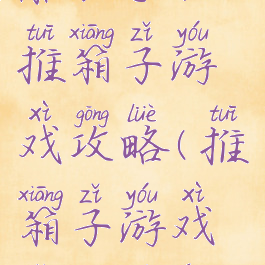 tuī xiāng zǐ yóu
推箱子游
xì gōng lüè tuī
戏攻略(推
xiāng zǐ yóu xì
箱子游戏